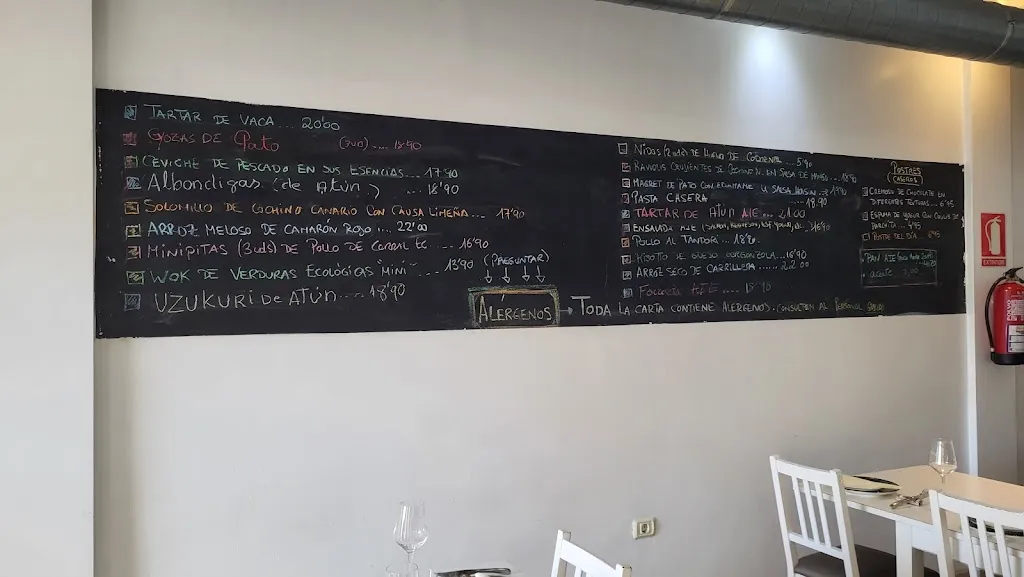 TARTAR DE VACA.... 20'00
GYOZAS DE Pato (7UD).... 18'90
CEVICHE DE PESCADO EN SUS ESENCIAS.... 17'90
Albondigas (de Atún).... 18'90
SOLOMILLO DE COCHINO CANARIO CON CAUSA LIMEÑA... 17'90
ARROZ MELOSO DE CAMARÓN ROJO... 22'00
MINIPITAS (3uds) DE POLLO DE CORRAL 16'90
WOK DE VERDURAS ECOLÓGICAS "MINI".... 13'90
UZUKURI DE ATÚN.... 18'90
(PREGUNTAR)
ALÉRGENOS
TODA LA CARTA CONTIENE ALERGENOS. CONSULTEN AL PERSONAL
NIDOS DE HUEVO DE CODORNIZ.... 5'90
RAVIOLIS CRUJIENTES DE EN SALSA DE MANGO... 18'90
MAGRET DE PATO CON EDAMAME Y SALSA HOISIN
PASTA CASERA 18'90
TARTAR DE ATÚN AJE... 21'00
ENSALADA AJE 16'90
POLLO AL TANDORI... 18'90
RISOTTO DE QUESO GORGONZOLA... 18'90
ARROZ SECO DE CARRILLERA...... 22'00
POSTRES
CASEROS
CREMOSO DE CHOCOLATE EN
DIFERENTES TEXTURAS... 6'95
ESPUMA DE YOGUR CON
POSTRE DEL DÍA
PAN AJE
aceite
EXTINTOR